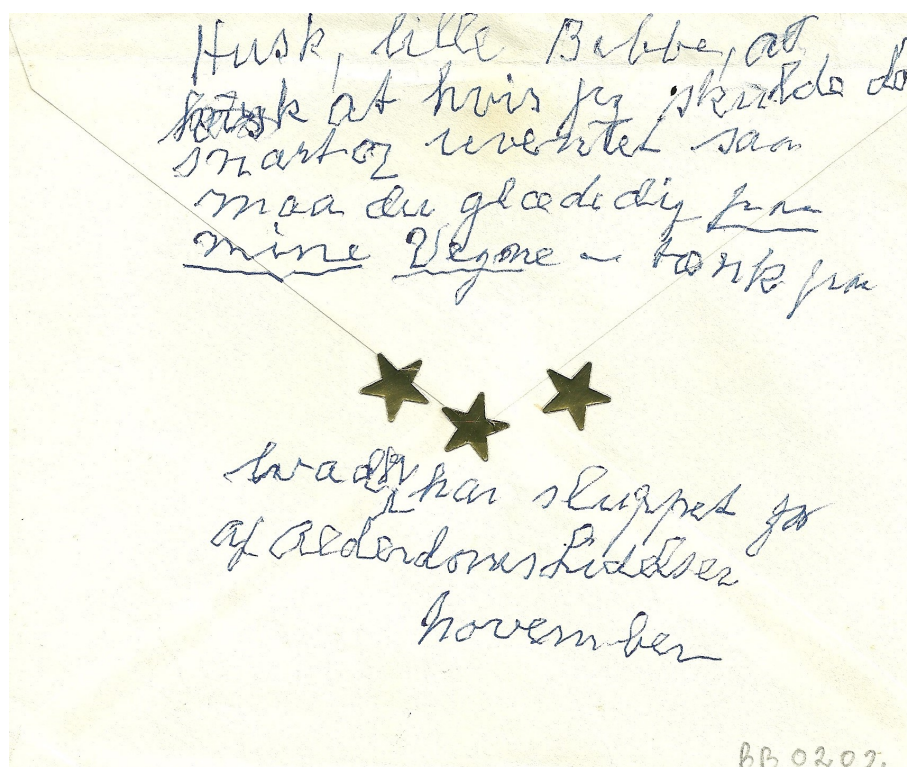 Husk, lille Bebbe, at
husk at hvis jeg skulde dø
snart og uventet saa
maa du glæde dig paa
mine Vegne – tænk paa
hvad jeg har sluppet for
af Alderdoms Lidelser
november
BB 0202.